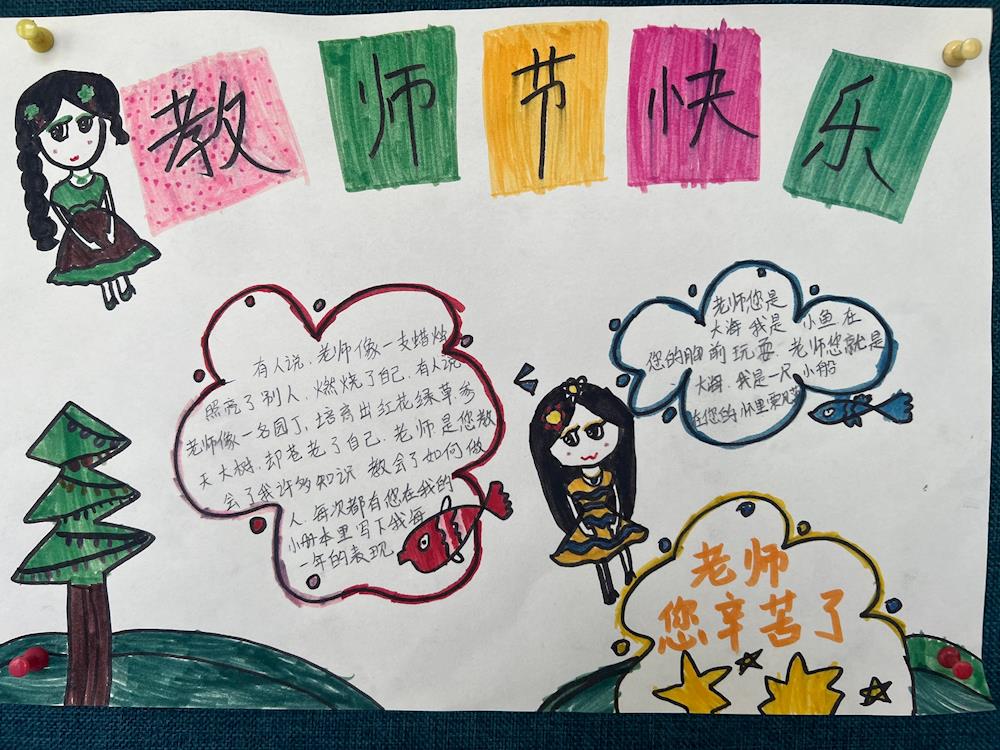 教师节快乐
有人说，老师像一支蜡烛
照亮了别人，燃烧了自己，有人说
老师像一名园丁，培育出红花绿草，参
天大树，却苍老了自己，老师是您教
会了我许多知识 教会了如何做
人，每次都有您在我的
小册本里写下我每
一年的表现
老师您是
大海 我是 小鱼 在
您的胸前玩耍，老师您就是
大海，我是一只 小船
在您的怀里
老师
您辛苦了